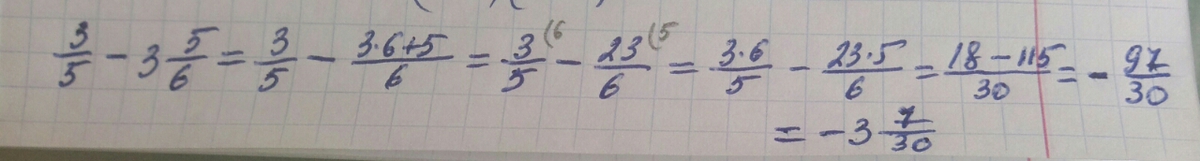 3/5 - 3 5/6 = 3/5 - (3·6+5)/6 = 3/5 (6 - 23/6 (5 = 3·6/5 - 23·5/6 = (18-115)/30 = - 97/30
= -3 7/30